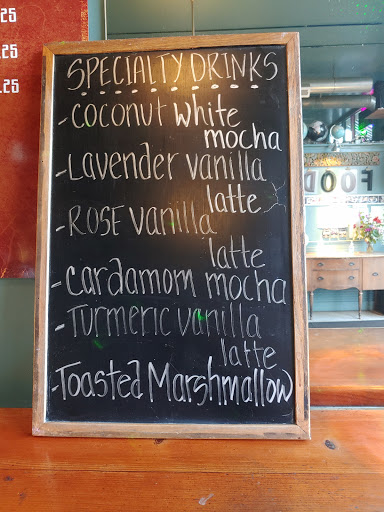 .25
.25
.25
SPECIALTY DRINKS
-COCONUT White
mocha
-Lavender vanilla
latte
-ROSE vanilla
latte
-Cardamom mocha
-Turmeric vanilla
latte
-Toasted Marshmallow
FOOD